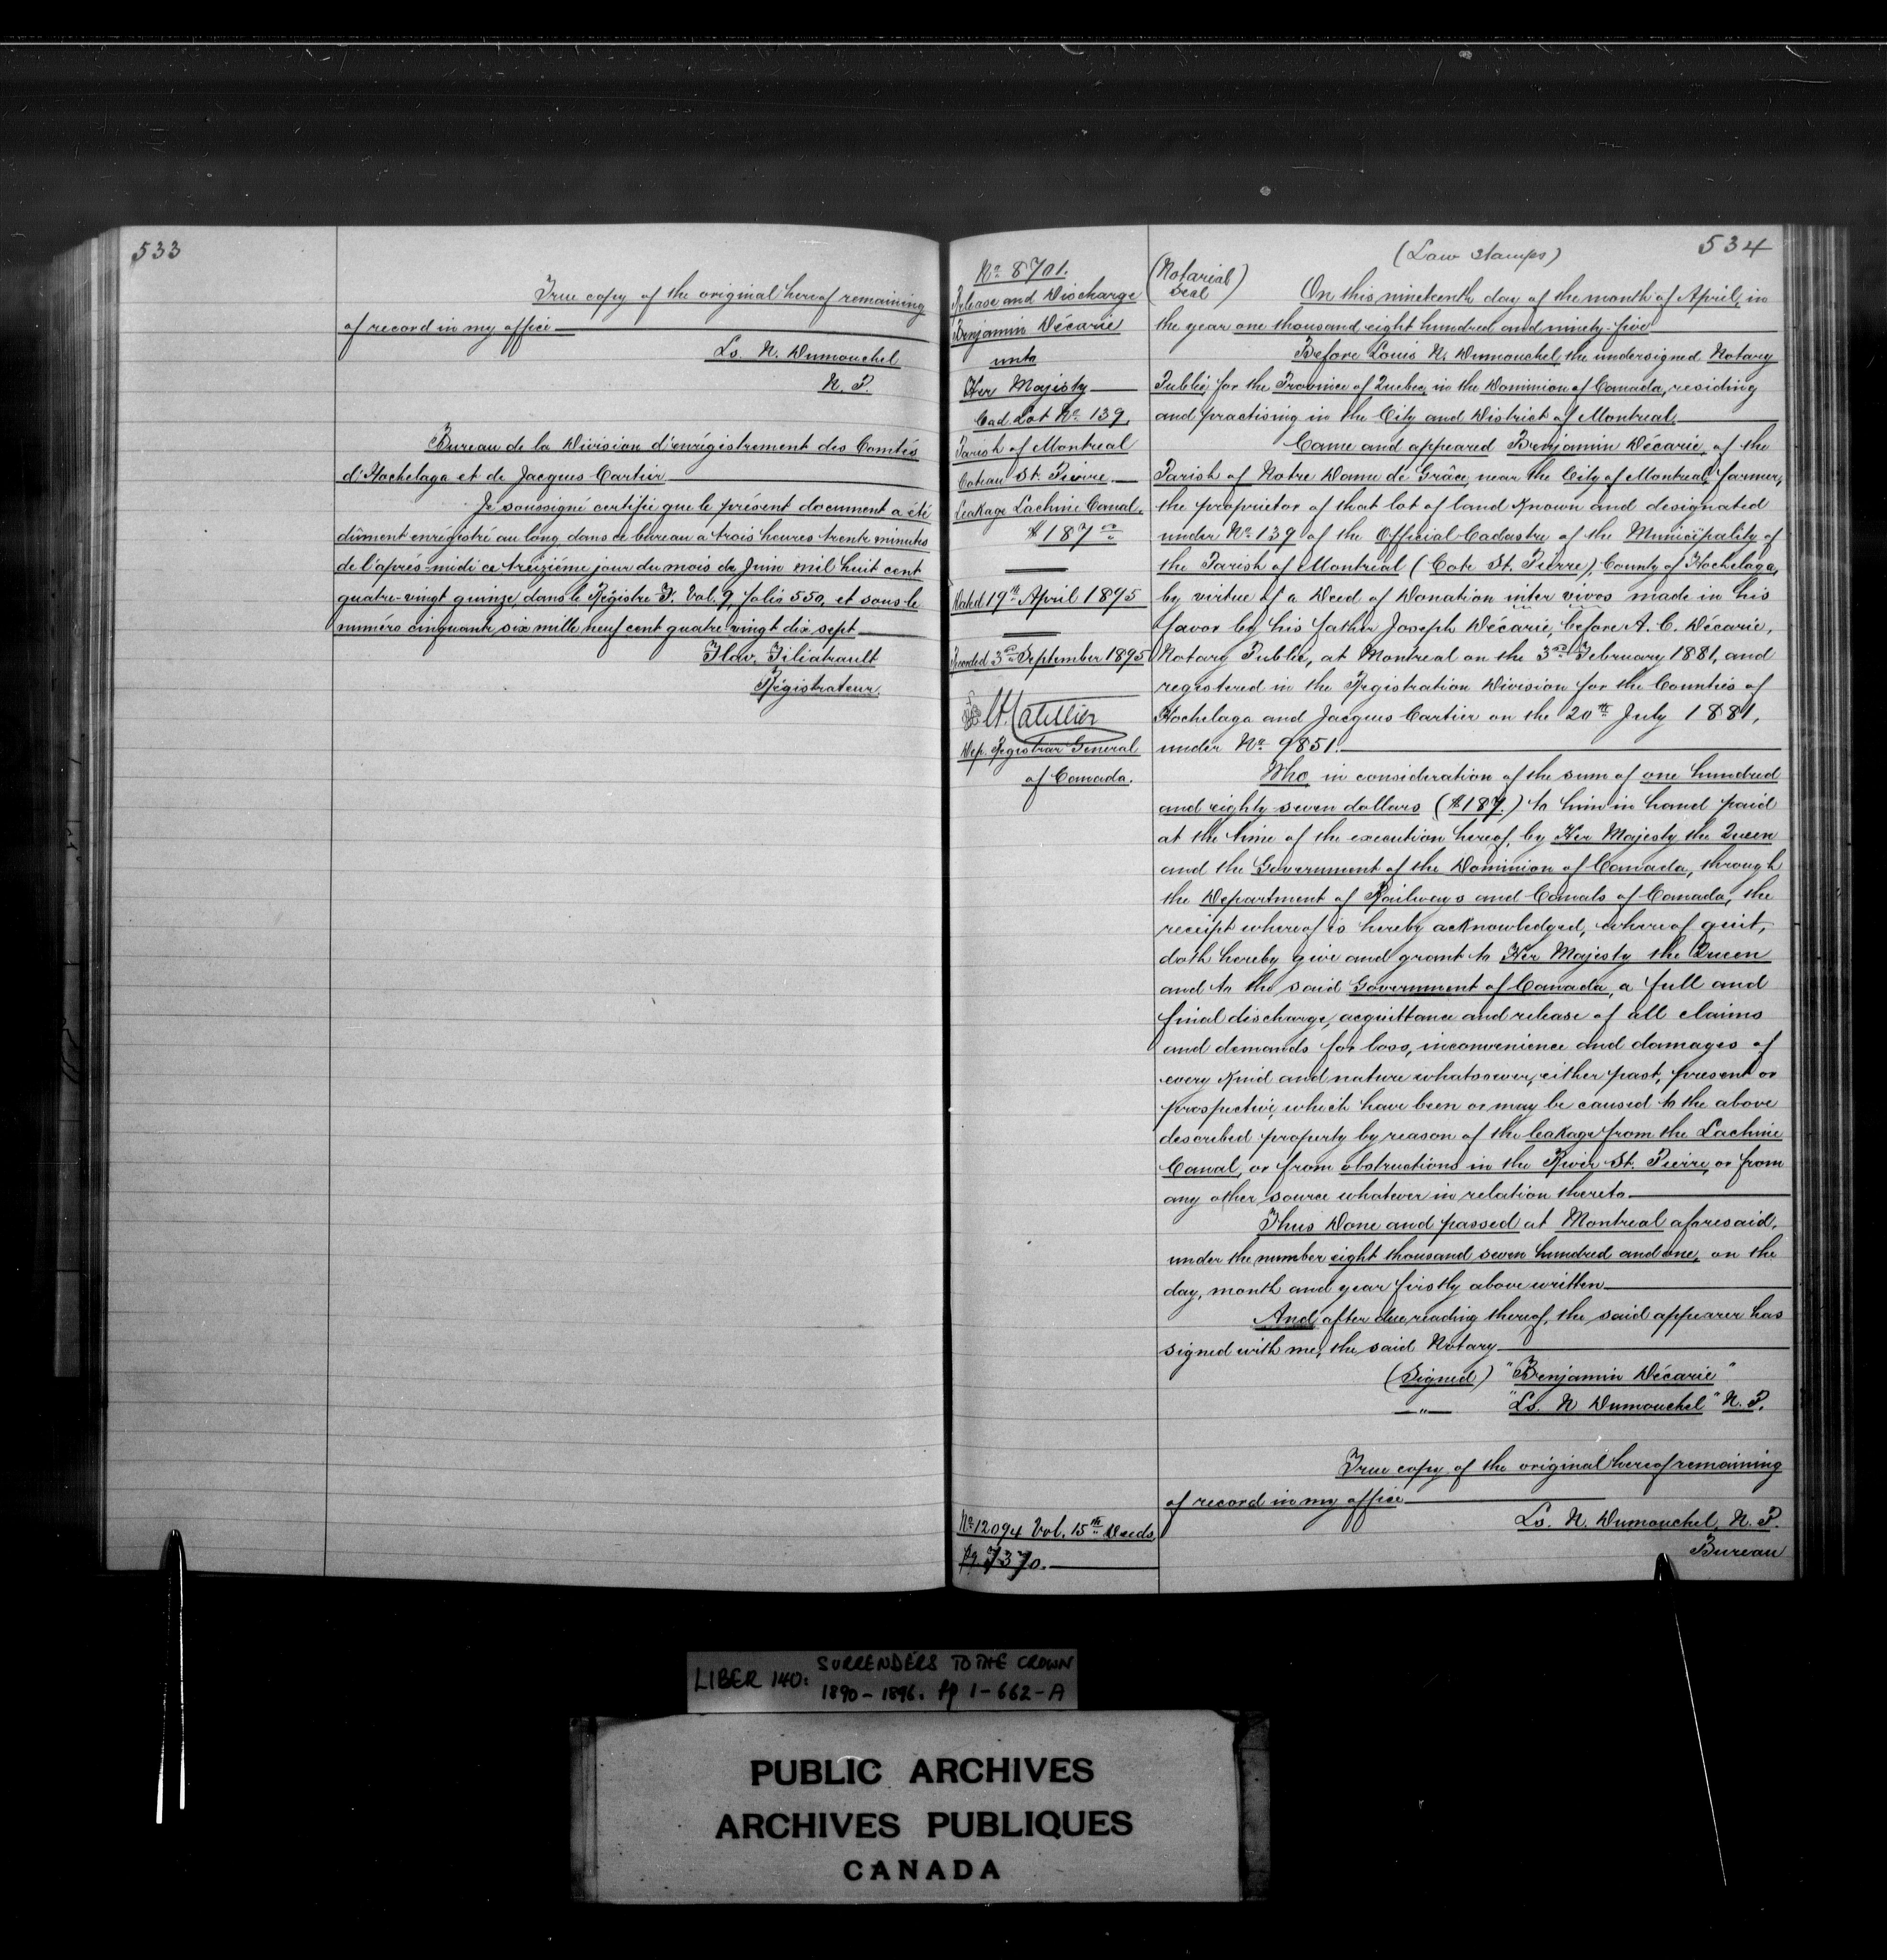 533
True copy of the original hereof remaining
of record in my office
Ls. N. Dumouchel
N. P.
Bureau de la Division d'enrégistrement des Comtés
d'Hochelaga et de Jacques Cartier
Je soussigné certifie que le présent document a été
dûment enrégistré au long dans ce bureau a trois heures trente minutes
de l'après-midi ce treizième jour du mois de Juin mil huit cent
quatre-vingt quinze, dans le Régistre F. Vol. 9 folio 550, et sous le
numéro cinquante six mille neuf cent quatre-vingt dix sept
Flav. Filiatrault
Régistrateur.
No 8701.
Release and Discharge
Benjamin Décarie
unto
Her Majesty
Cad. Lot No 139,
Parish of Montreal
Coteau St. Pierre.
Leakage Lachine Canal.
$187 00
Dated 19th April 1895
Recorded 3rd September 1895
Dep. Registrar General
of Canada.
No 12094 Vol. 15th Deeds.
534
(Law Stamps)
(Notarial
Seal)
On this nineteenth day of the month of April, in
the year one thousand eight hundred and ninety-five
Before Louis N. Dumouchel the undersigned Notary
Public, for the Province of Quebec, in the Dominion of Canada, residing
and practising in the City and District of Montreal.
Came and appeared Benjamin Décarie, of the
Parish of Notre Dame de Grâce, near the City of Montreal, farmer,
the proprietor of that lot of land known and designated
under No 139 of the Official Cadastre of the Municipality of
the Parish of Montreal (Cote St. Pierre), County of Hochelaga,
by virtue of a Deed of Donation inter vivos made in his
favor by his father Joseph Décarie, before A. C. Décarie,
Notary Public, at Montreal on the 3rd February 1881, and
registered in the Registration Division for the Counties of
Hochelaga and Jacques Cartier on the 20th July 1881,
under No 9851.
Who in consideration of the sum of one hundred
and eighty seven dollars ($187.) to him in hand paid
at the time of the execution hereof, by Her Majesty the Queen
and the Government of the Dominion of Canada, through
the Department of Railways and Canals of Canada, the
receipt whereof is hereby acknowledged, whereof quit,
doth hereby give and grant to Her Majesty the Queen
and to the said Government of Canada, a full and
final discharge, acquittance and release of all claims
and demands for loss, inconvenience and damages of
every kind and nature whatsoever, either past, present or
prospective, which have been or may be caused to the above
described property by reason of the leakage from the Lachine
Canal, or from obstructions in the River St. Pierre, or from
any other source whatever in relation thereto
Thus Done and passed at Montreal aforesaid,
under the number eight thousand seven hundred and one, on the
day, month and year firstly above written
And after due reading thereof, the said appearer has
signed with me, the said Notary
(Signed) "Benjamin Décarie"
—"— "Ls. N Dumouchel" N. P.
True copy of the original hereof remaining
of record in my office
Ls. N. Dumouchel, N. P.
Bureau
LIBER 140: SURRENDERS TO THE CROWN
1890-1896. pp 1-662-A
PUBLIC ARCHIVES
ARCHIVES PUBLIQUES
CANADA